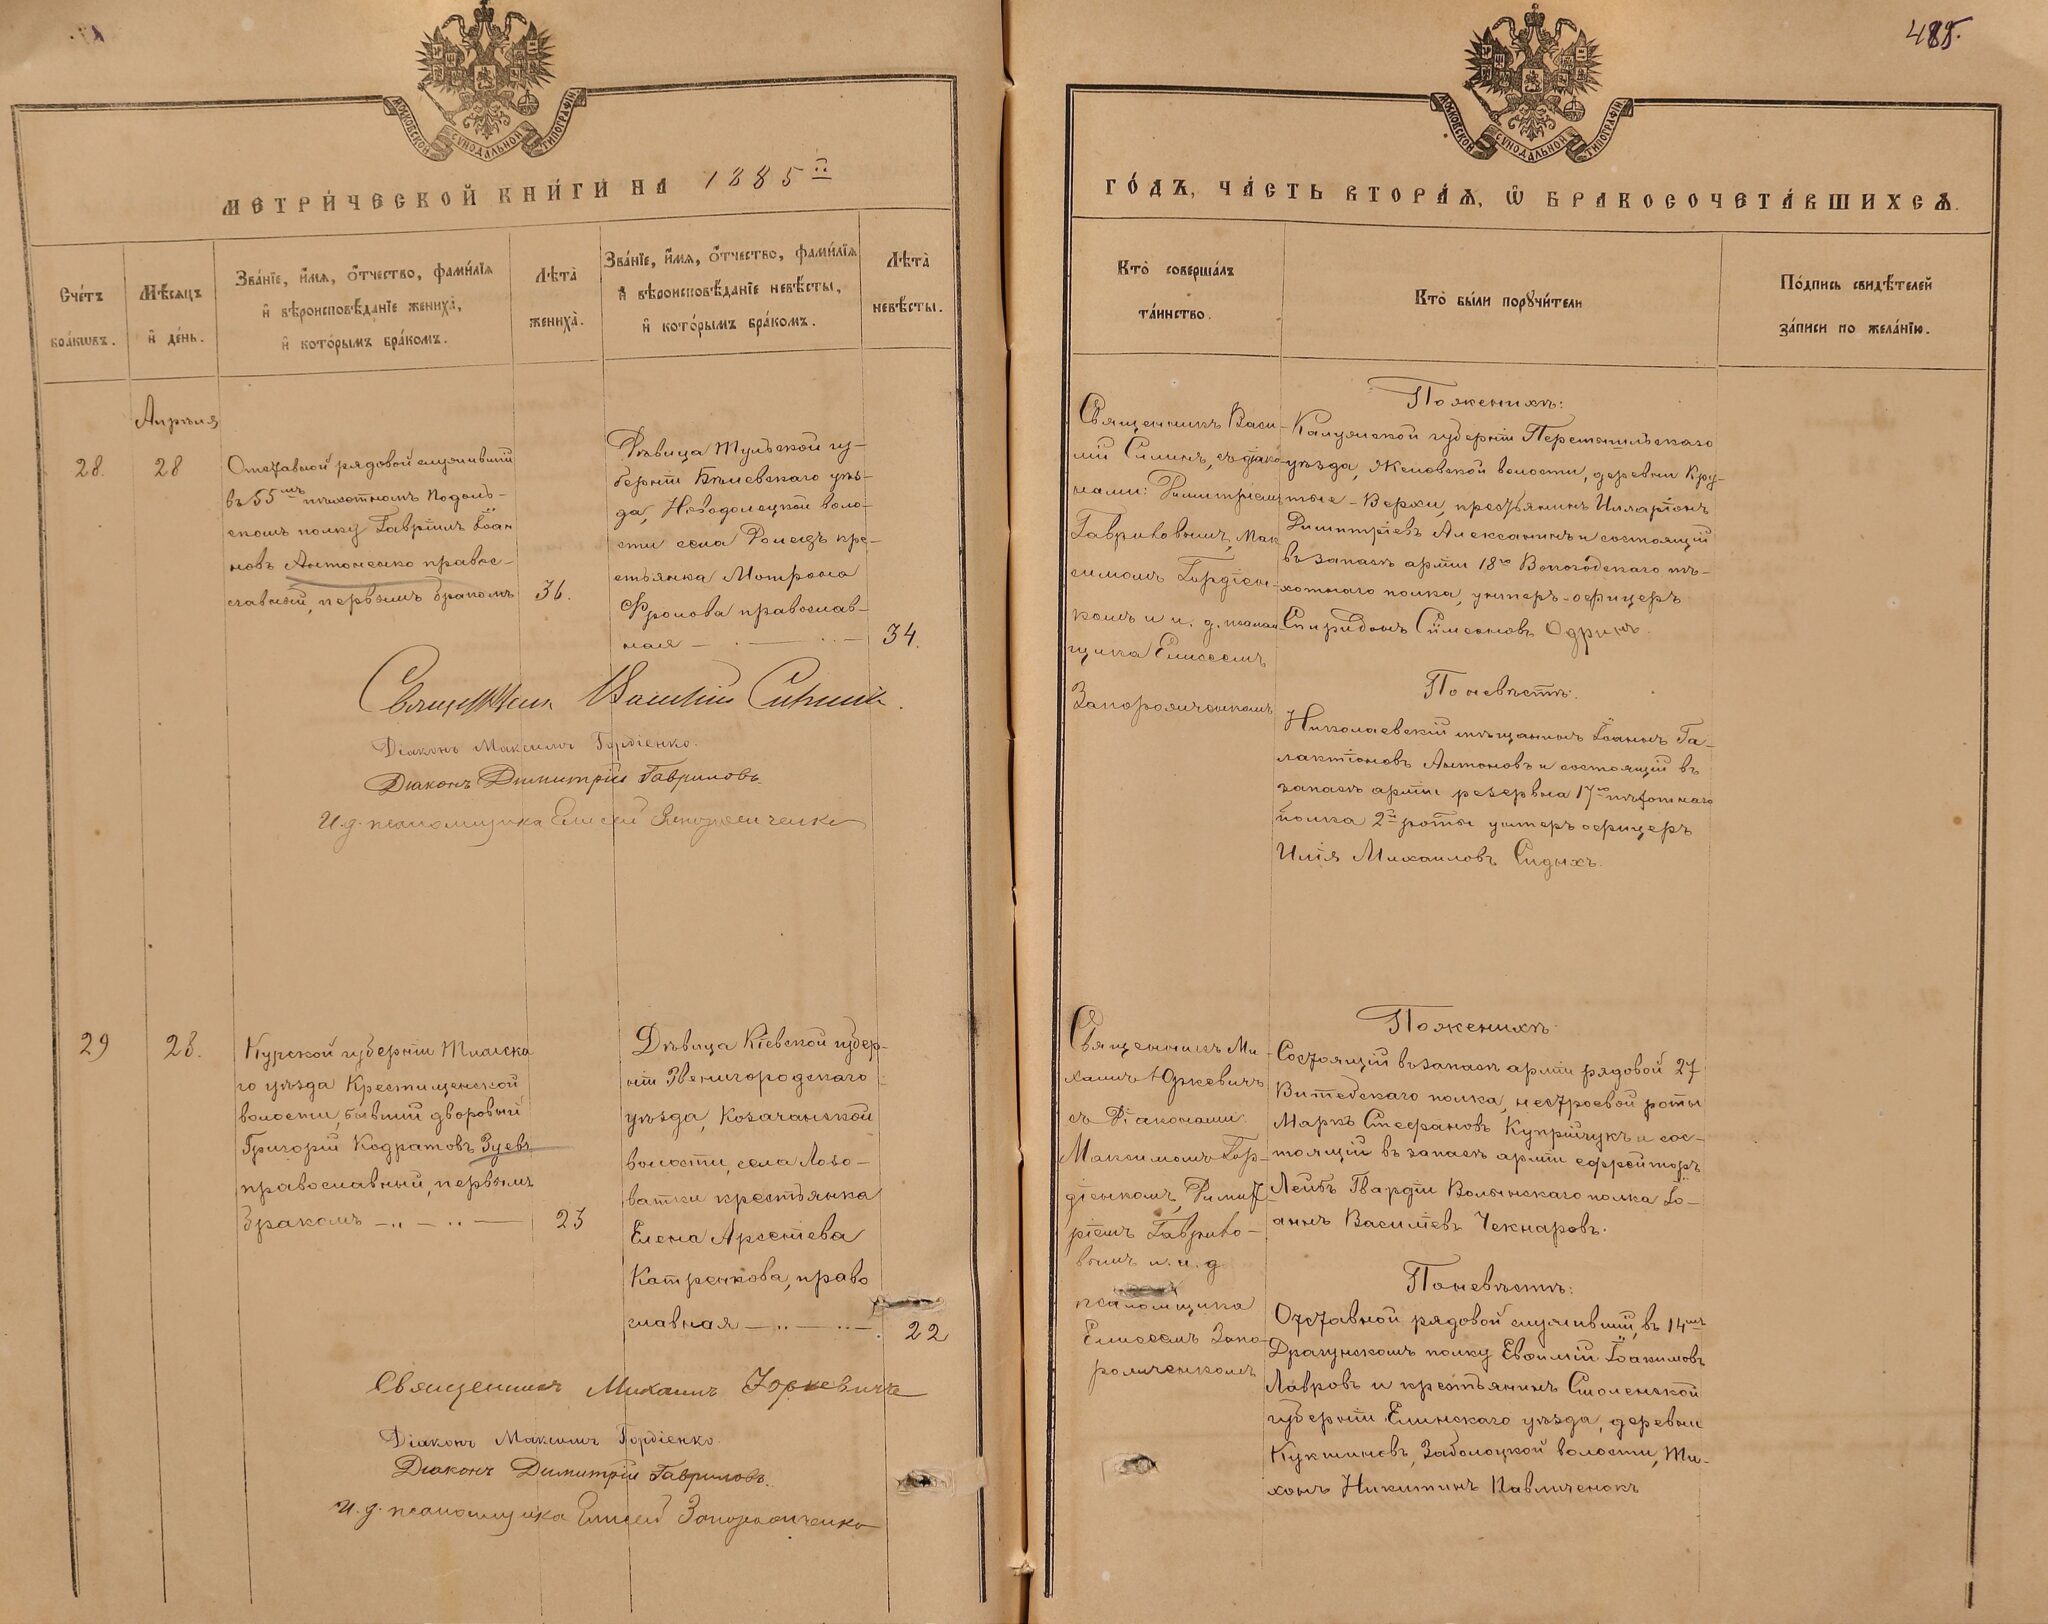 485.
МОСКОВСКОЙ СѴНОДАЛЬНОЙ ТИПОГРАФІИ
МЕТРИ́ЧЕСКОЙ КНИ́ГИ НА 1885 й
Сче́тъ бра́кѡвъ.
Мѣ́сяцъ и҆ де́нь.
Зва́нїе, и҆́мѧ, ѻ҆́тчество, фами́лїѧ
и҆ вѣроисповѣ́данїе жениха̀,
и҆ кото́рымъ бра́комъ.
Лѣта̀
жениха̀.
Зва́нїе, и҆́мѧ, ѻ҆́тчество, фами́лїѧ
и҆ вѣроисповѣ́данїе невѣ́сты,
и҆ кото́рымъ бра́комъ.
Лѣта̀
невѣ́сты.
Апрѣля
28.
28
Отставной рядовой служившій
въ 55мъ пѣхотномъ Подоль-
скомъ полку Гавріилъ Іоан
новъ Антоненко правос-
лавный, первымъ бракомъ
36.
Дѣвица Тульской гу-
берніи Бѣлевскаго уѣз-
да, Новодолецкой воло-
сти села Долецъ кре-
стьянка Матрона
Фролова православ-
ная
34.
Священникъ Василій Силинъ.
Діаконъ Максимъ Гордіенко.
Діаконъ Димитрій Гавриловъ.
И. д. псаломщика Елисей Запорожченко
29
28.
Курской губерніи Тимска
го уѣзда Крестищенской
волости, бывшій дворовый
Григорій Кодратовъ Зуевъ
православный, первымъ
бракомъ
23
Дѣвица Кіевской губер-
ніи Звенигородскаго
уѣзда, Козачанской
волости, села Лозо-
ватки крестьянка
Елена Арсеніева
Катренкова, право
славная
22
Священникъ Михаилъ Юркевичъ
Діаконъ Максимъ Гордіенко.
Діаконъ Димитрій Гавриловъ.
И. д. псаломщика Елисей Запорожченко
МОСКОВСКОЙ СѴНОДАЛЬНОЙ ТИПОГРАФІИ
ГО́ДЪ, ЧА́СТЬ ВТОРА́Ѧ, Ѡ҆ БРАКОСОЧЕТА́ВШИХСѦ.
Кто̀ соверша́лъ
та́инство.
Кто̀ бы́ли порꙋчи́тели
По́дпись свидѣ́телей
за́писи по жела́нїю.
Священникъ Васи-
лій Силинъ, съ діако-
нами: Димитріемъ
Гавриловымъ, Мак
симомъ Гордіен-
комъ и и. д. псалом
щика Елисеемъ
Запорожченкомъ
По женихѣ:
Калужской губерніи Перемышльскаго
уѣзда, Желовской волости, деревни Кру-
тые-Верхи, крестьянинъ Илларіонъ
Димитріевъ Алексанинъ и состоящій
въ запасѣ арміи 18го Вологодскаго пѣ-
хотнаго полка, унтеръ-офицеръ
Спиридонъ Симеоновъ
По невѣстѣ:
Николаевскій мѣщанинъ Іоаннъ Га-
лактіоновъ Антоновъ и состоящій въ
запасѣ арміи резерва 17го пѣхотнаго
полка 2й роты унтеръ офицеръ
Илія Михаиловъ Сидыхъ.
Священникъ Ми-
хаилъ Юркевичъ
съ Діаконами:
Максимомъ Гор-
діенкомъ, Димит-
ріемъ Гаврило-
вымъ и. и. д
псаломщика
Елисеемъ Запо-
рожченкомъ
По женихѣ:
Состоящій въ запасѣ арміи рядовой 27
Витебскаго полка, нестроевой роты
Маркъ Стефановъ Купрійчукъ и сос-
тоящій въ запасѣ арміи ефрейторъ
Лейбъ Гвардіи Волынскаго полка Іо-
аннъ Василіевъ Чекмаровъ.
По невѣстѣ:
Отставной рядовой служившій въ 14мъ
Драгунскомъ полку Евѳимій Іоакимовъ
Лавровъ и крестьянинъ Смоленской
губерніи Елинскаго уѣзда, деревни
Кукшиновъ, Заболоцкой волости, Ти-
хонъ Никитинъ Павличенокъ